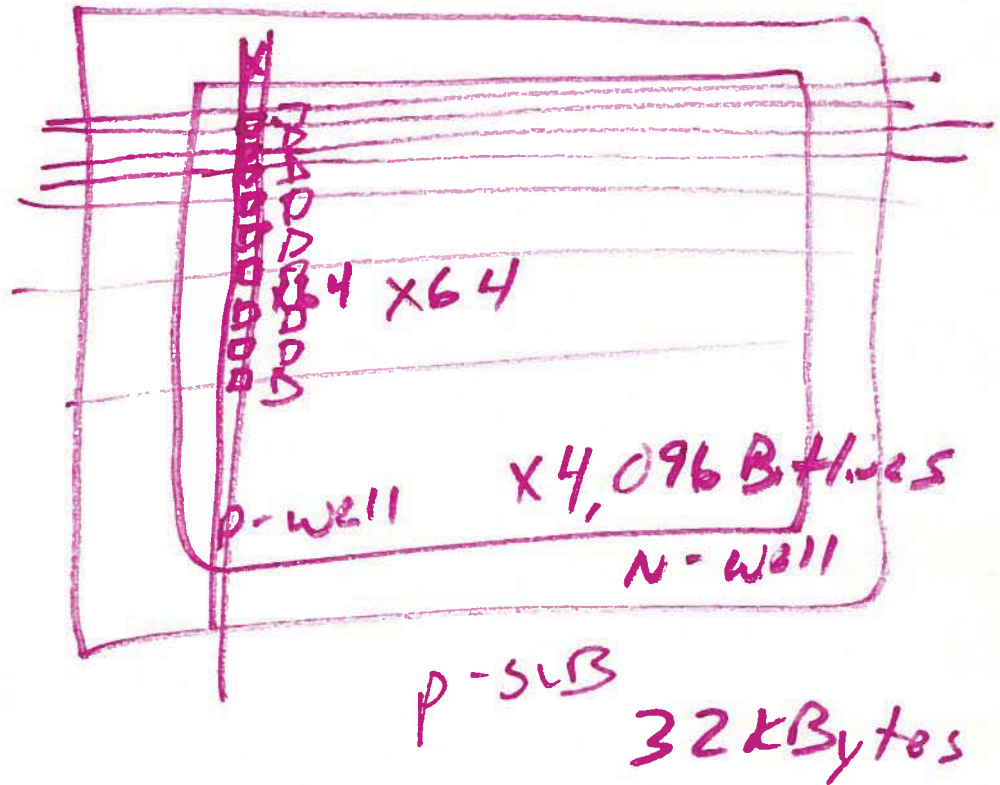 64 x64
x4,096 Bitlines
p-well
N-well
p-sub
32 kBytes